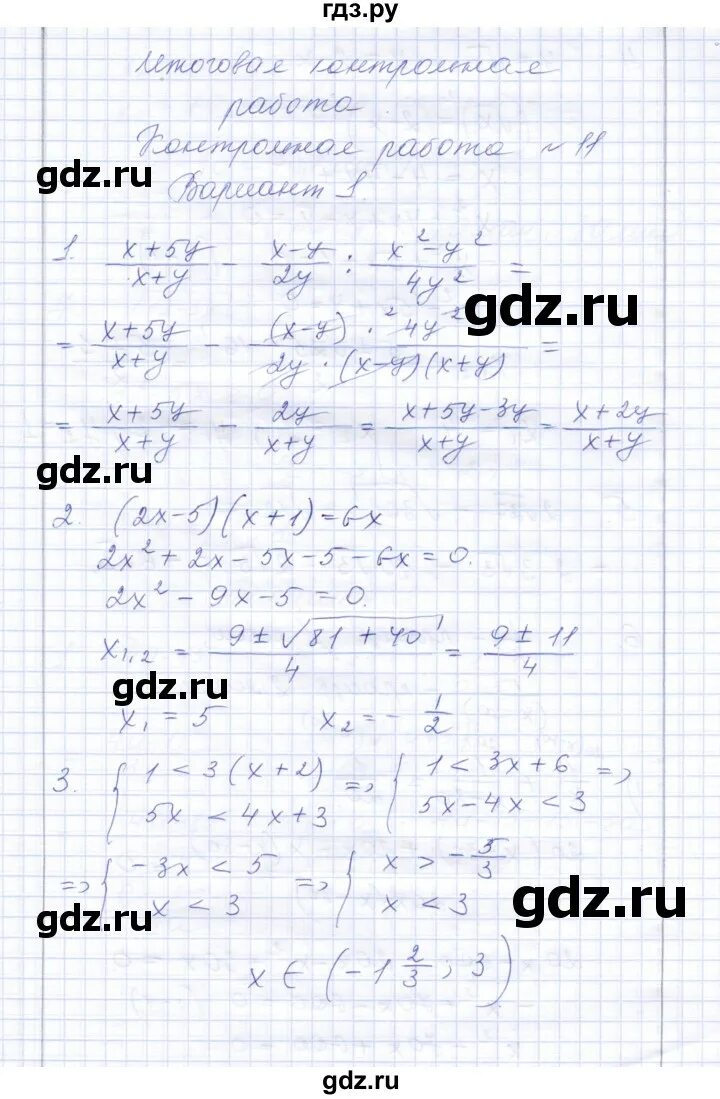 гдз.ру
Итоговая контрольная
работа.
Контрольная работа №11
Вариант 1.
gdz.ru
1. (x+5y)/(x+y) - (x-y)/(2y) : (x²-y²)/(4y²) =
gdz.ru
= (x+5y)/(x+y) - ((x-y) · ²4y²)/(2y · (x-y)(x+y)) =
= (x+5y)/(x+y) - 2y/(x+y) = (x+5y-3y)/(x+y) = (x+2y)/(x+y)
gdz.ru
2. (2x-5)(x+1)=6x
2x²+2x-5x-5-6x=0.
2x²-9x-5=0.
x₁,₂ = (9±√(81+40))/4 = (9±11)/4
gdz.ru
x₁=5 x₂=-1/2
3. { 1<3(x+2) => { 1<3x+6 =>
5x<4x+3 5x-4x<3
=> { -3x<5 => { x>-5/3
x<3 x<3
gdz.ru gdz.ru
x∈(-1 2/3; 3)
gdz.ru